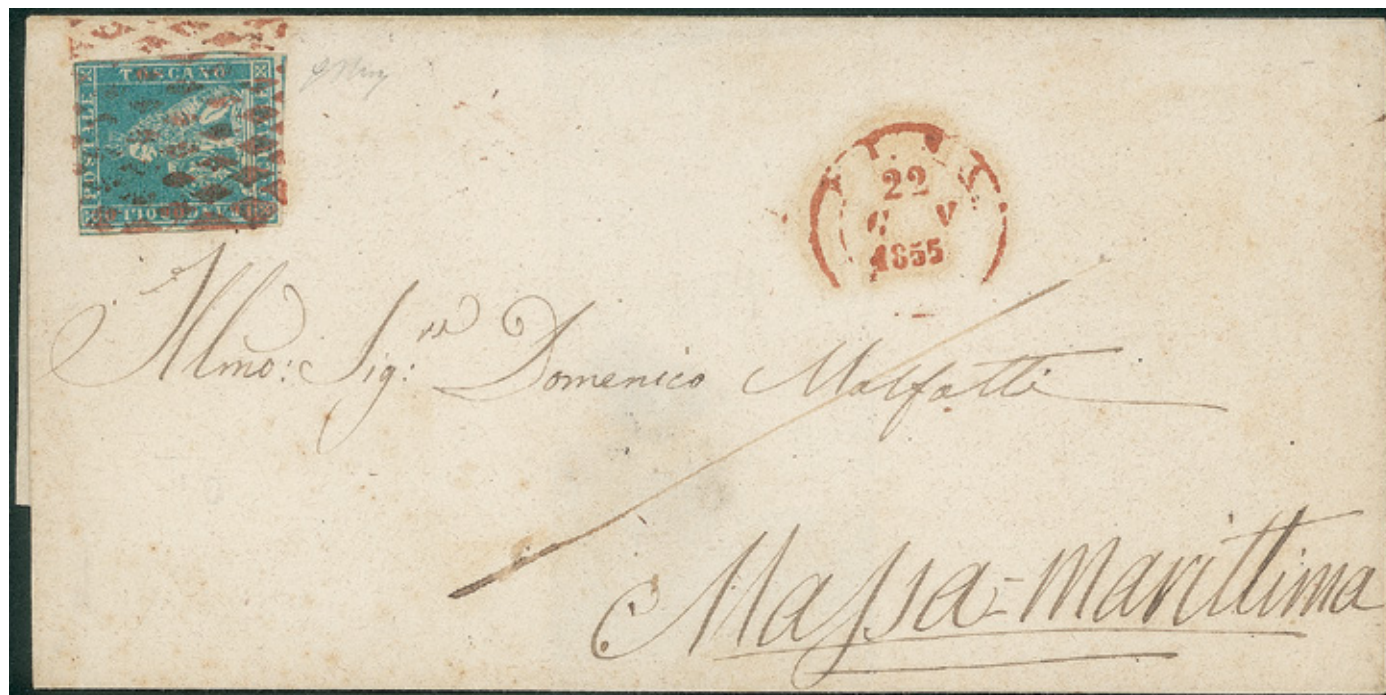 TOSCANO
POSTALE
22
G V
1855
Illmo: Sig:re Domenico Malfatti
Massa-Marittima